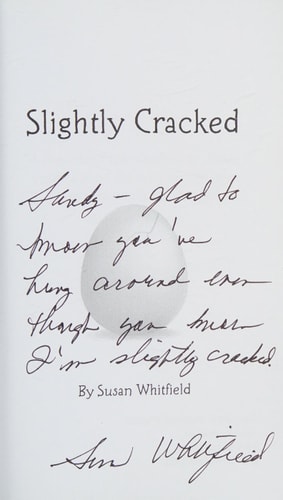 Slightly Cracked
Sandy – glad to
know you've
hung around even
though you know
I'm slightly cracked.
By Susan Whitfield
Susan Whitfield